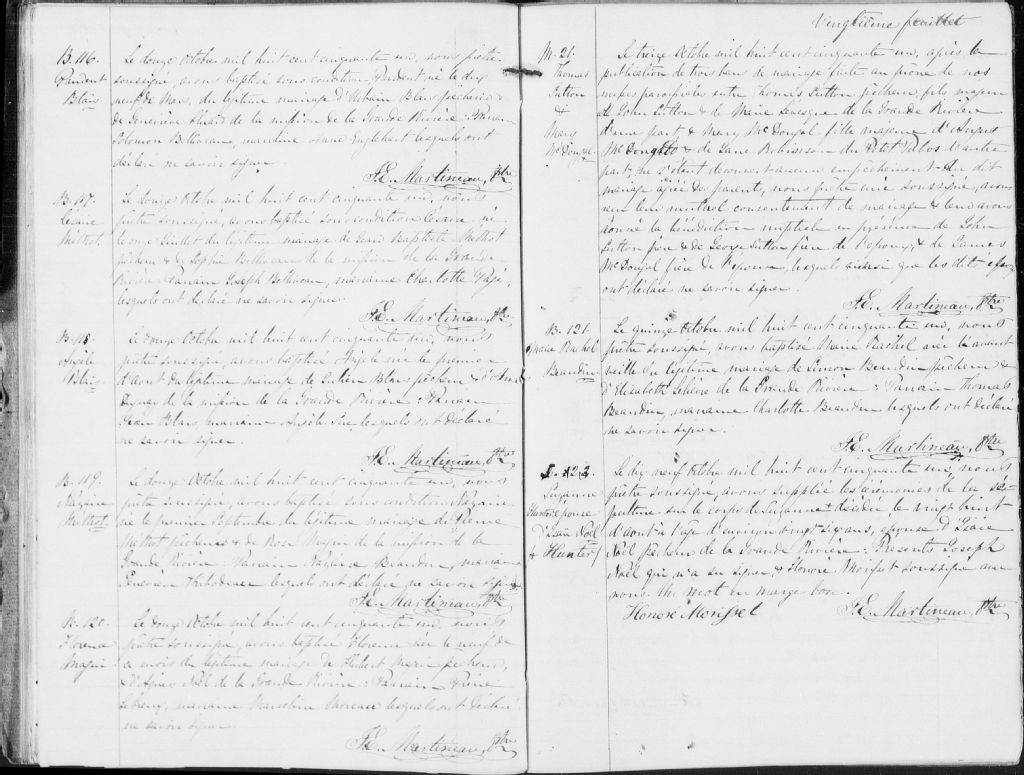 B. 116.
Prudent
Blais.
Le douze Octobre mil huit cent cinquante un, nous prêtre
soussigné avons baptisé sous condition Prudent né le dix
neuf de Mars, du légitime mariage d'Urbain Blais pêcheur &
de Geneviève de la mission de la Grande Rivière: Parrain
Solomon Belliveau, marraine Anne Englehart lesquels ont
déclaré ne savoir signer.
F.E. Martineau, Ptre
B. 117.
Césaire
Methot.
Le douze Octobre mil huit cent cinquante un, nous
prêtre soussigné, avons baptisé sous condition Césaire né
le onze Juillet du légitime mariage de Jean Baptiste Methot
pêcheur & de Sophie Belliveau de la mission de la Grande
Rivière Parrain Joseph Belliveau, marraine Charlotte
lesquels ont déclaré ne savoir signer.
F.E. Martineau, Ptre
B. 118.
Angèle
Blais.
Le douze Octobre mil huit cent cinquante un, nous
prêtre soussigné, avons baptisé Angèle née le premier
d'Aout du légitime mariage de Julien Blais pêcheur &
de la mission de la Grande Rivière: Parrain
Jean Blais, marraine Angèle lesquels ont déclaré
ne savoir signer.
F.E. Martineau, Ptre
B. 119.
Nazaire
Methot.
Le douze Octobre mil huit cent cinquante un, nous
prêtre soussigné, avons baptisé sous condition Nazaire
né le premier Septembre du légitime mariage de Pierre
Methot pêcheur & de Rose de la mission de la
Grande Rivière: Parrain Nazaire Beaudin, marraine
Thibodeau lesquels ont déclaré ne savoir signer.
F.E. Martineau, Ptre
B. 120.
Florence
Le douze Octobre mil huit cent cinquante un, nous
prêtre soussigné, avons baptisé Florence née le neuf de
ce mois du légitime mariage de pêcheur,
& d'Agnès Noël de la Grande Rivière: Parrain Pierre
marraine Marceline Moreau lesquels ont déclaré
ne savoir signer.
F.E. Martineau, Ptre
Vingtième feuillet
M. 21.
Thomas
Sutton
&
Mary
McDougal
Le treize Octobre mil huit cent cinquante un, après la
publication de trois bans de mariage faite au prône de nos
messes paroissiales entre Thomas Sutton pêcheur, fils majeur
de John Sutton & de Marie de la Grande Rivière
d'une part & Mary McDougal fille majeure d'Angus
McDougall & de Jane Robinson du Petit Pabos d'autre
part, ne s'étant découvert aucun empêchement au dit
mariage des parents, nous prêtre curé soussigné, avons
reçu leur mutuel consentement de mariage & leur avons
donné la bénédiction nuptiale en présence de John
Sutton père & de George Sutton frère de l'époux, & de James
McDougal frère de l'épouse, lesquels ainsi que les dits époux
ont déclaré ne savoir signer.
F.E. Martineau, Ptre
B. 121.
Marie Rachel
Beaudin
Le quinze Octobre mil huit cent cinquante un, nous
prêtre soussigné, avons baptisé Marie Rachel née l'avant
veille du légitime mariage de Simon Beaudin pêcheur &
d'Elisabeth de la Grande Rivière: Parrain Thomas
Beaudin, marraine Charlotte Beaudin lesquels ont déclaré
ne savoir signer.
F.E. Martineau, Ptre
S. 22
Suzanne
épouse
d'Isaïe Noël
+ Hunter /
Le dix neuf Octobre mil huit cent cinquante un, nous
prêtre soussigné, avons supplié les cérémonies de la sé-
pulture sur le corps de Suzanne + décédée le vingt huit
d'aout à l'âge d'environ vingt six ans, épouse d'Isaïe
Noël pêcheur de la Grande Rivière: Présents Joseph
Noël qui n'a su signer & Honoré Morisset soussigné avec
nous. Un mot en marge bon.
Honoré Morisset
F.E. Martineau, Ptre